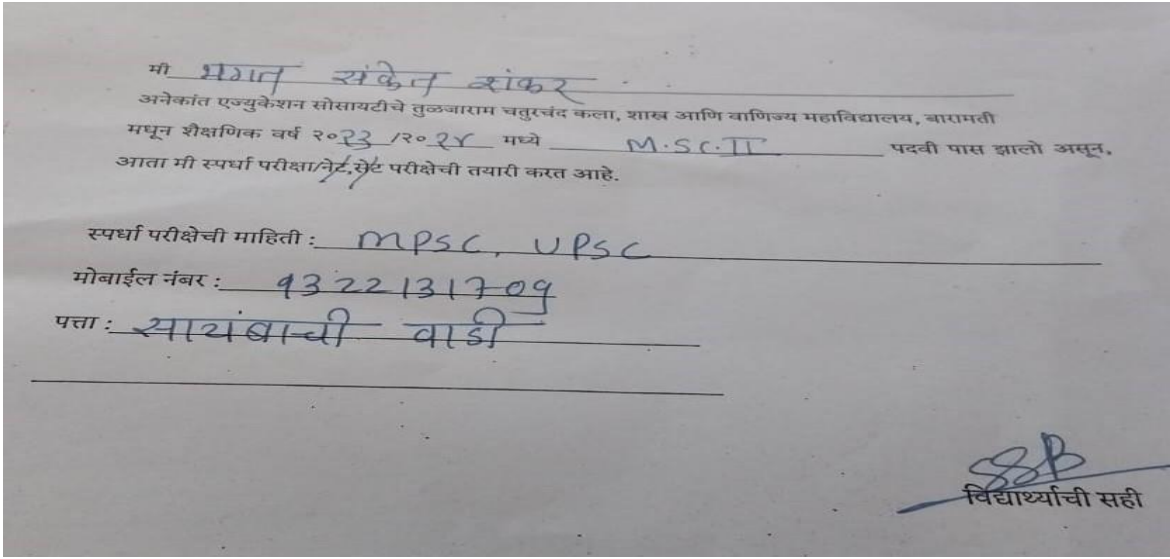 मी भगत संकेत शंकर
अनेकांत एज्युकेशन सोसायटीचे तुळजाराम चतुरचंद कला, शास्त्र आणि वाणिज्य महाविद्यालय, बारामती
मधून शैक्षणिक वर्ष २०२३ /२०२४ मध्ये M.SC.II पदवी पास झालो असून,
आता मी स्पर्धा परीक्षा/नेट,सेट परीक्षेची तयारी करत आहे.
स्पर्धा परीक्षेची माहिती : MPSC, UPSC
मोबाईल नंबर : 9322131709
पत्ता : सायंबाची वाडी
SSB
विद्यार्थ्याची सही